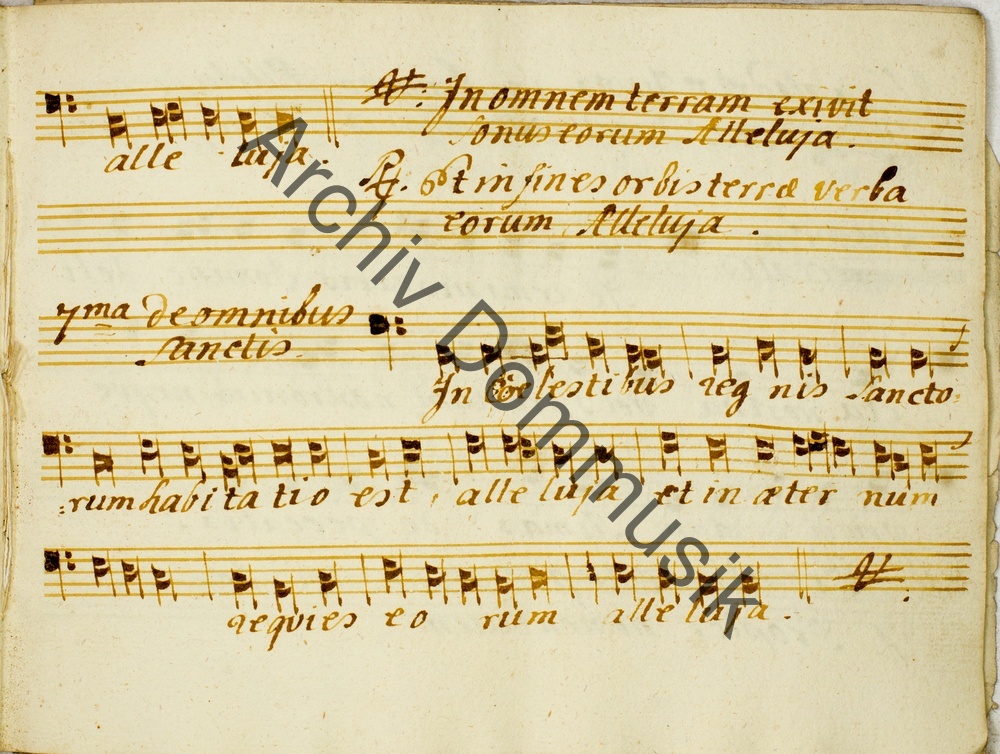 alle luja.
℣. In omnem terram exivit
sonus eorum Alleluja.
℟. Et in fines orbis terræ verba
eorum Alleluja.
7ma de omnibus
Sanctis.
In Cœlestibus reg nis Sancto=
=rum habita tio est, alle luja et in æter num
requies eo rum alle luja.
℣.
Archiv Dommusik